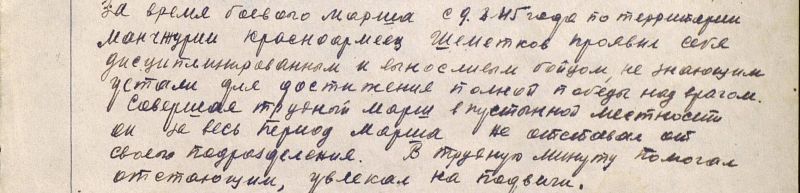 За время боевого марша с 9.8-45 года по территории
Манчжурии красноармеец Шеметков проявил себя
дисциплинированным и выносливым бойцом, не знающим
устали для достижения полной победы над врагом.
Совершая трудный марш в пустынной местности
он за весь период марша не отставал от
своего подразделения. В трудную минуту помогал
отстающим, увлекал на подвиги.